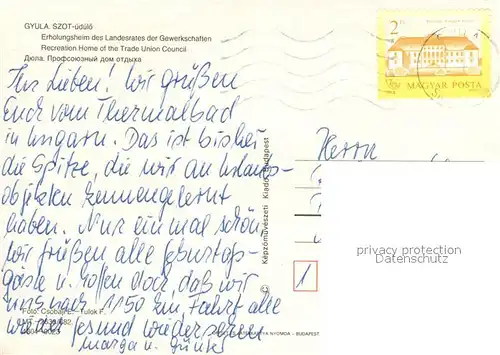 GYULA. SZOT-üdülő
Erholungsheim des Landesrates der Gewerkschaften
Recreation Home of the Trade Union Council
Дюла. Профсоюзный дом отдыха
2 Ft
MAGYAR POSTA
Ihr Lieben! Wir grüßen
Euch vom Thermalbad
in Ungarn. Das ist bisher
die Spitze, die wir an Urlaubs-
objekten kennengelernt
haben. Nur einmal schön
Wir grüßen alle Geburtags-
gäste u. hoffen doch, daß wir
uns nach 1150 km Fahrt alle
wieder gesund wiedersehen
Marga u. Günter
Foto: Csobaj E. - Tulok F.
Képzőművészeti Kiadó, Budapest
Herrn
privacy protection
Datenschutz
1
NYOMDA - BUDAPEST